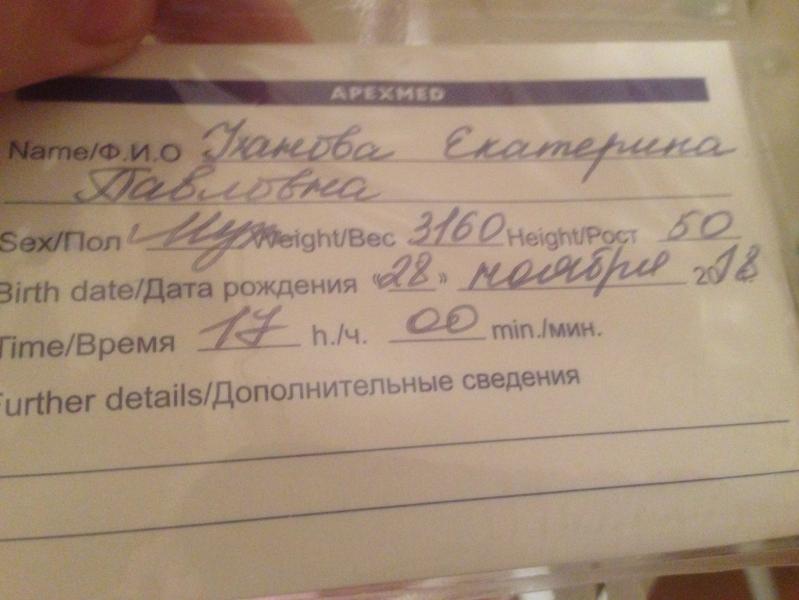 APEXMED
Name/Ф.И.О Уханова Екатерина
Павловна
Sex/Пол Муж Weight/Вес 3160 Height/Рост 50
Birth date/Дата рождения «28» ноября 2018
Time/Время 17 h./ч. 00 min./мин.
Further details/Дополнительные сведения